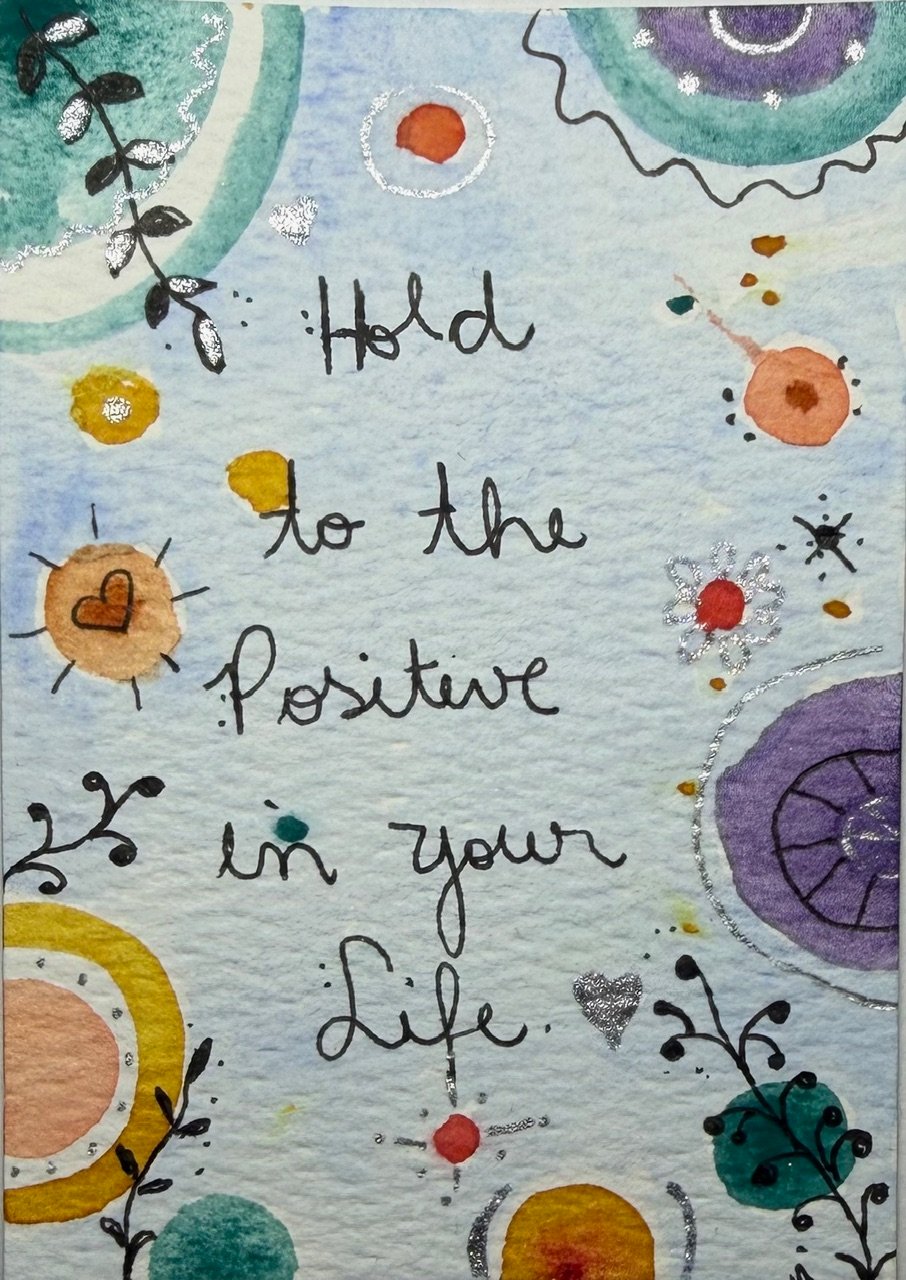 Hold
to the
Positive
in your
Life.